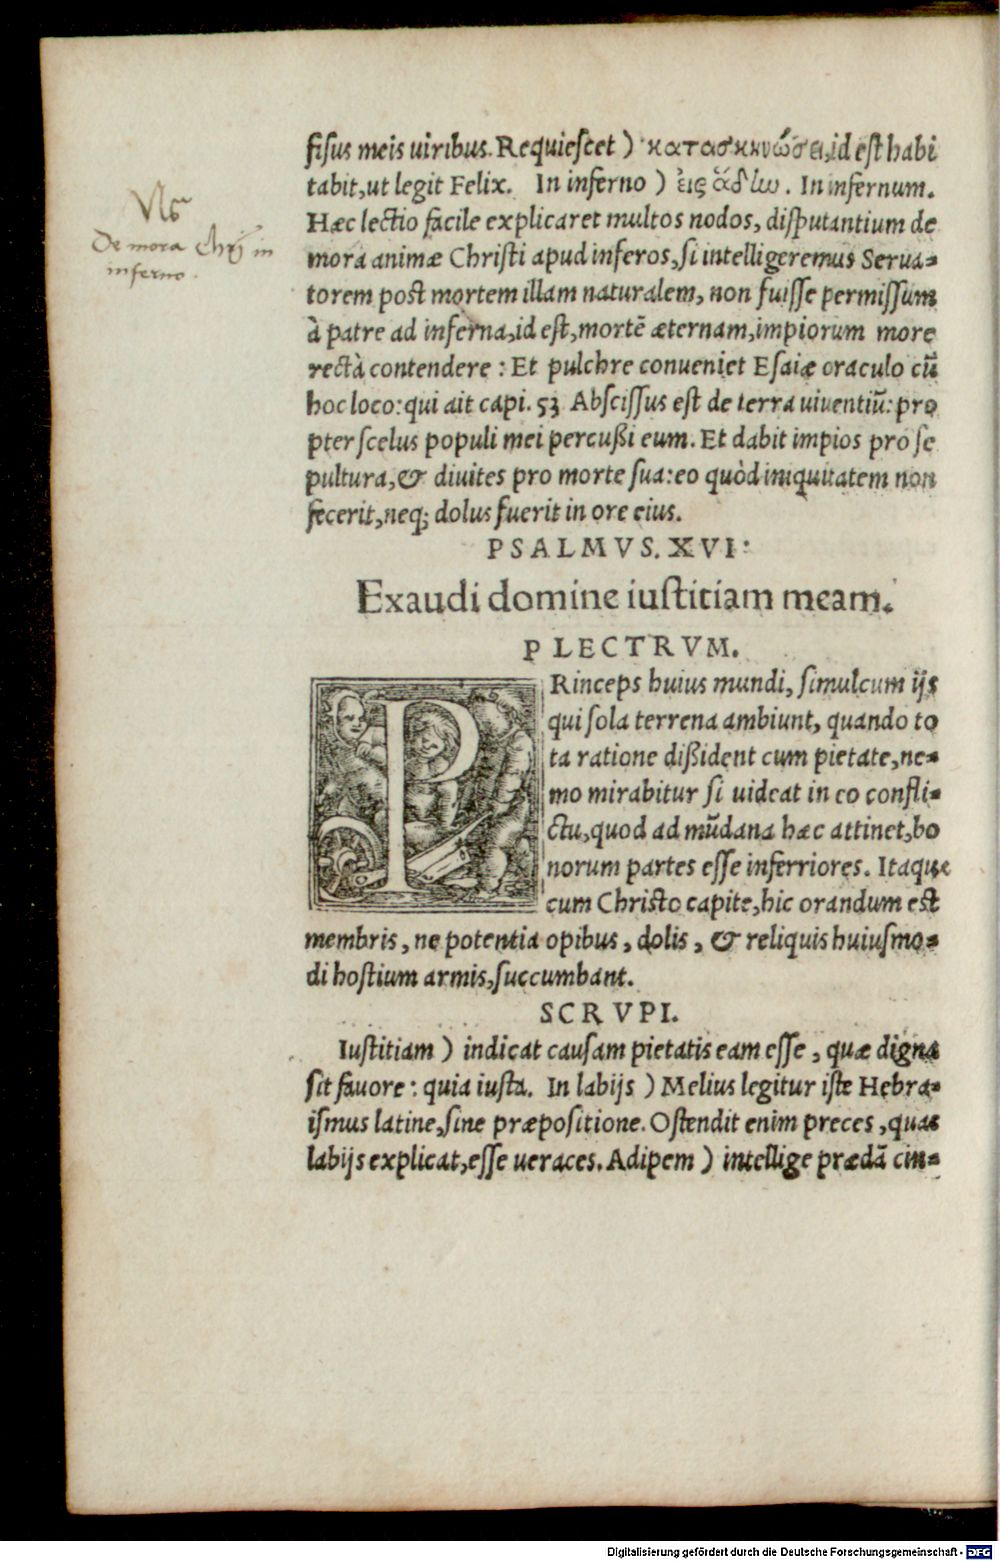 fisus meis uiribus. Requiescet ) κατασκηνώσει, id est habi
tabit, ut legit Felix. In inferno ) εἰς ᾅδlω. In infernum.
Hæc lectio facile explicaret multos nodos, disputantium de
mora animæ Christi apud inferos, si intelligeremus Serua-
torem post mortem illam naturalem, non fuisse permissum
à patre ad inferna, id est, mortē æternam, impiorum more
rectà contendere : Et pulchre conueniet Esaiæ oraculo cū
hoc loco: qui ait capi. 53 Abscissus est de terra uiuentiū: pro
pter scelus populi mei percußi eum. Et dabit impios pro se
pultura, & diuites pro morte sua: eo quòd iniquitatem non
fecerit, neq; dolus fuerit in ore eius.
De mora Chrj in
inferno.
PSALMVS. XVI.
Exaudi domine iustitiam meam.
PLECTRVM.
PRinceps huius mundi, simulcum ijs
qui sola terrena ambiunt, quando to
ta ratione dißident cum pietate, ne-
mo mirabitur si uideat in eo confli-
ctu, quod ad mūdana hæc attinet, bo
norum partes esse inferriores. Itaque
cum Christo capite, hic orandum est
membris, ne potentia opibus, dolis, & reliquis huiusmo-
di hostium armis, succumbant.
SCRVPI.
Iustitiam ) indicat causam pietatis eam esse, quæ digna
sit fauore: quia iusta. In labijs ) Melius legitur iste Hebra-
ismus latine, sine præpositione. Ostendit enim preces, quas
labijs explicat, esse ueraces. Adipem ) intellige prædā cin-
Digitalisierung gefördert durch die Deutsche Forschungsgemeinschaft - DFG